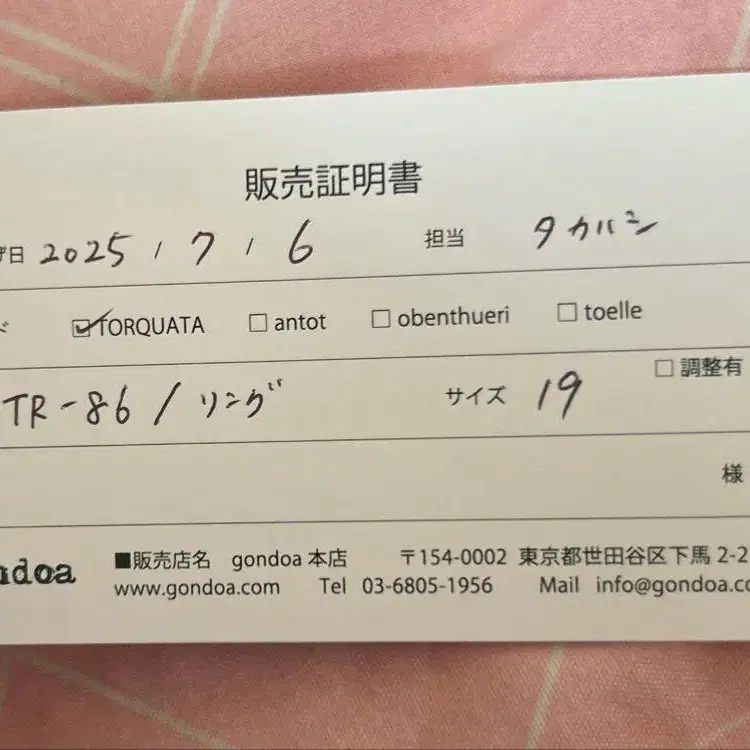 販売証明書
日 2025 / 7 / 6 担当 タカハシ
ド ☑TORQUATA □antot □obenthueri □toelle
TR-86 / リング サイズ 19 □調整有
様
ndoa ■販売店名 gondoa 本店 〒154-0002 東京都世田谷区下馬 2-2
www.gondoa.com Tel 03-6805-1956 Mail info@gondoa.co